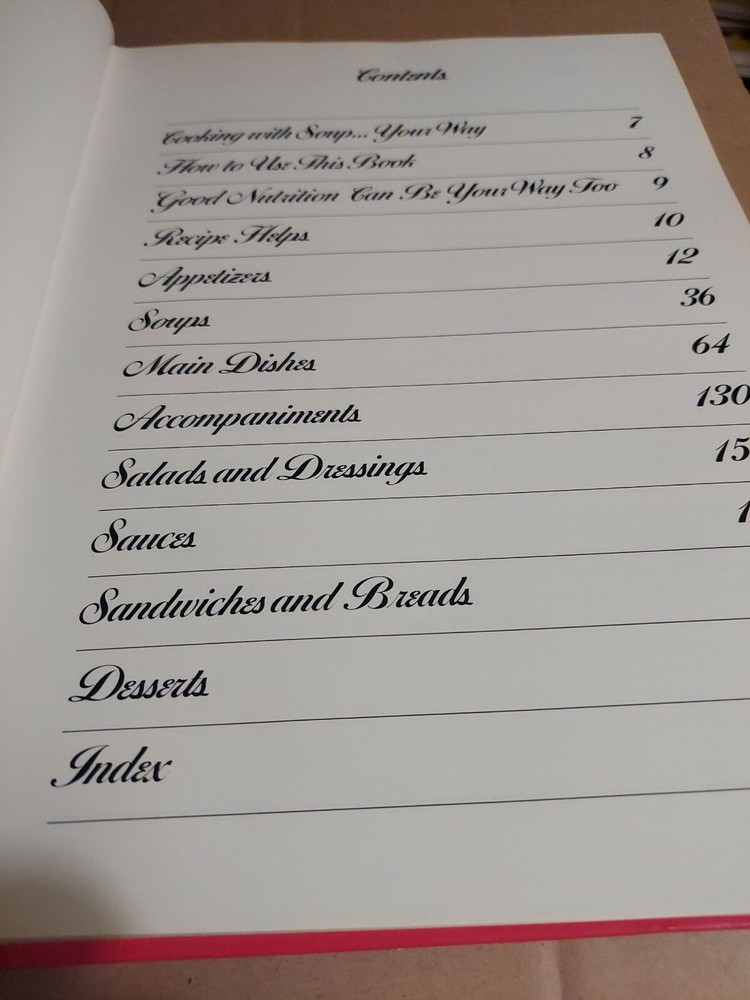 Contents
Cooking with Soup... Your Way 7
How to Use This Book 8
Good Nutrition Can Be Your Way Too 9
Recipe Helps 10
Appetizers 12
Soups 36
Main Dishes 64
Accompaniments 130
Salads and Dressings 15
Sauces 1
Sandwiches and Breads
Desserts
Index